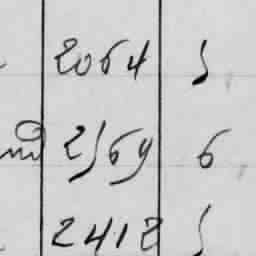 2064 5
2569 6
2412 5